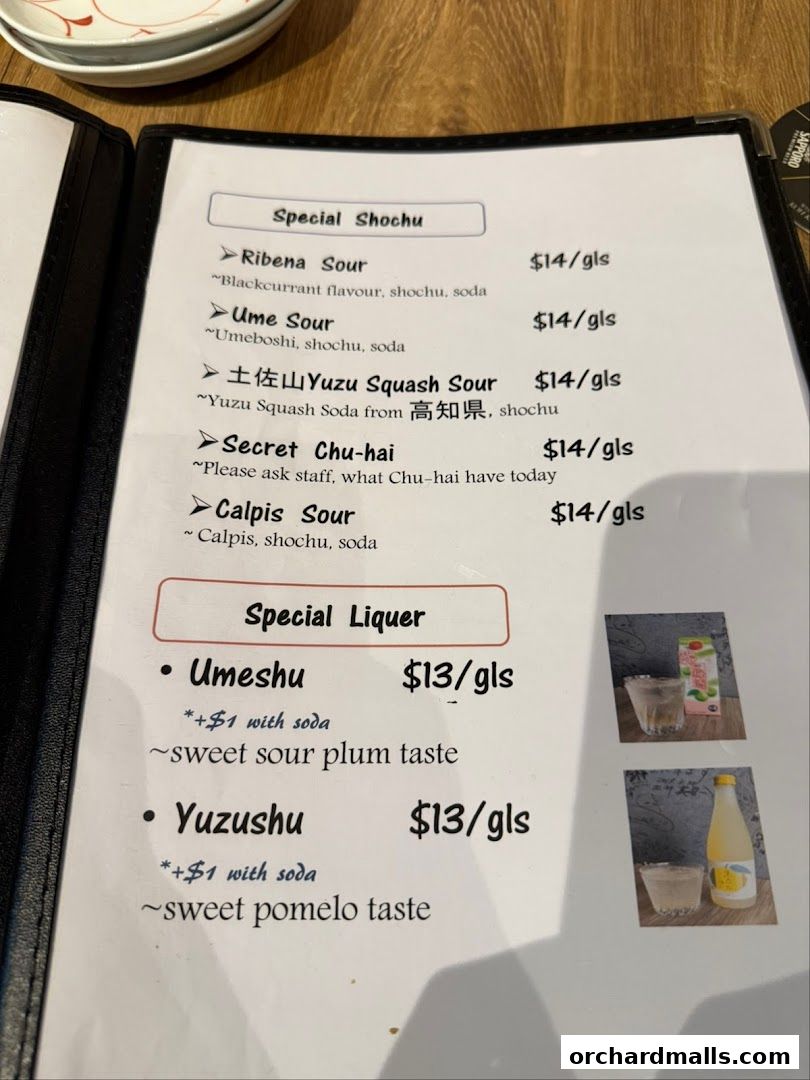 Special Shochu
➢Ribena Sour $14/gls
~Blackcurrant flavour, shochu, soda
➢Ume Sour $14/gls
~Umeboshi, shochu, soda
➢ 土佐山Yuzu Squash Sour $14/gls
~Yuzu Squash Soda from 高知県, shochu
➢Secret Chu-hai $14/gls
~Please ask staff, what Chu-hai have today
➢Calpis Sour $14/gls
~ Calpis, shochu, soda
Special Liquer
• Umeshu $13/gls
*+$1 with soda
~sweet sour plum taste
• Yuzushu $13/gls
*+$1 with soda
~sweet pomelo taste
SAPPORO
orchardmalls.com